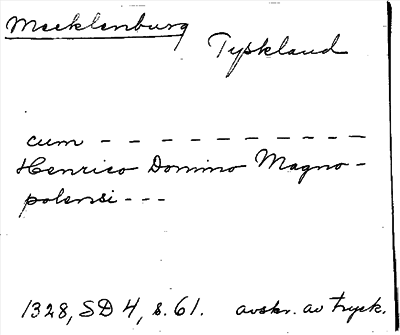 Mecklenburg
Tyskland
cum - - - - - - - - - - -
Henrico Domino Magno-
polensi - - -
1328, SD 4, s. 61. avskr. av tryck.